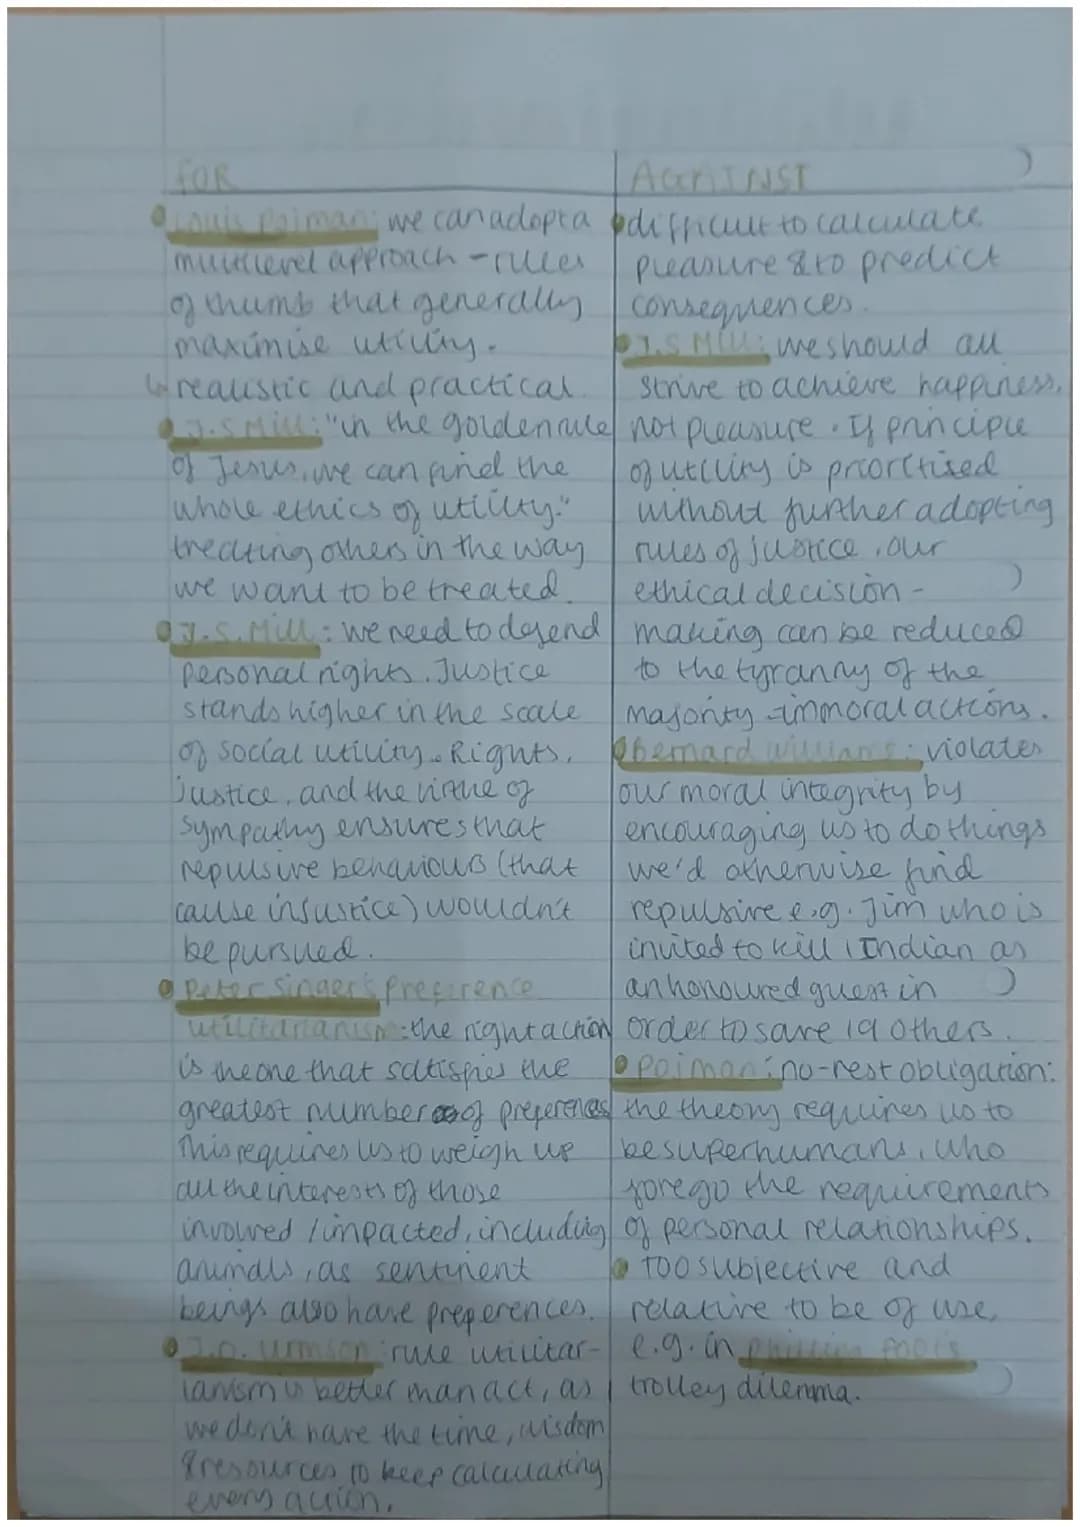 FOR
Louis Pojman: we can adopt a
multilevel approach - rules
of thumb that generally
maximise utility.
↳ realistic and practical.
J.S Mill: "in the golden rule
of Jesus, we can find the
whole ethics of utility."
treating others in the way
we want to be treated.
J.S. Mill: we need to defend
personal rights. Justice
stands higher in the scale
of social utility. Rights,
justice, and the virtue of
sympathy ensures that
repulsive behaviours (that
cause injustice) wouldn't
be pursued.
Peter Singer's preference
utilitarianism: the right action
is the one that satisfies the
greatest number of preferences
This requires us to weigh up
all the interests of those
involved / impacted, including
animals, as sentinent
beings also have preferences.
J.O. Urmson: rule utilitar-
ianism is better than act, as
we don't have the time, wisdom
& resources to keep calculating
every action.
AGAINST
difficult to calculate
pleasure & to predict
consequences.
J.S Mill: we should all
strive to achieve happiness,
not pleasure. If principle
of utility is prioritised
without further adopting
rules of justice, our
ethical decision-
making can be reduced
to the tyranny of the
majority - immoral actions.
bernard williams: violates
our moral integrity by
encouraging us to do things
we'd otherwise find
repulsive e.g. Jim who is
invited to kill 1 Indian as
an honoured guest in
order to save 19 others.
Pojman: no-rest obligation:
the theory requires us to
be superhumans, who
forego the requirements
of personal relationships.
Too subjective and
relative to be of use,
e.g. in phillipa foot's
trolley dilemma.